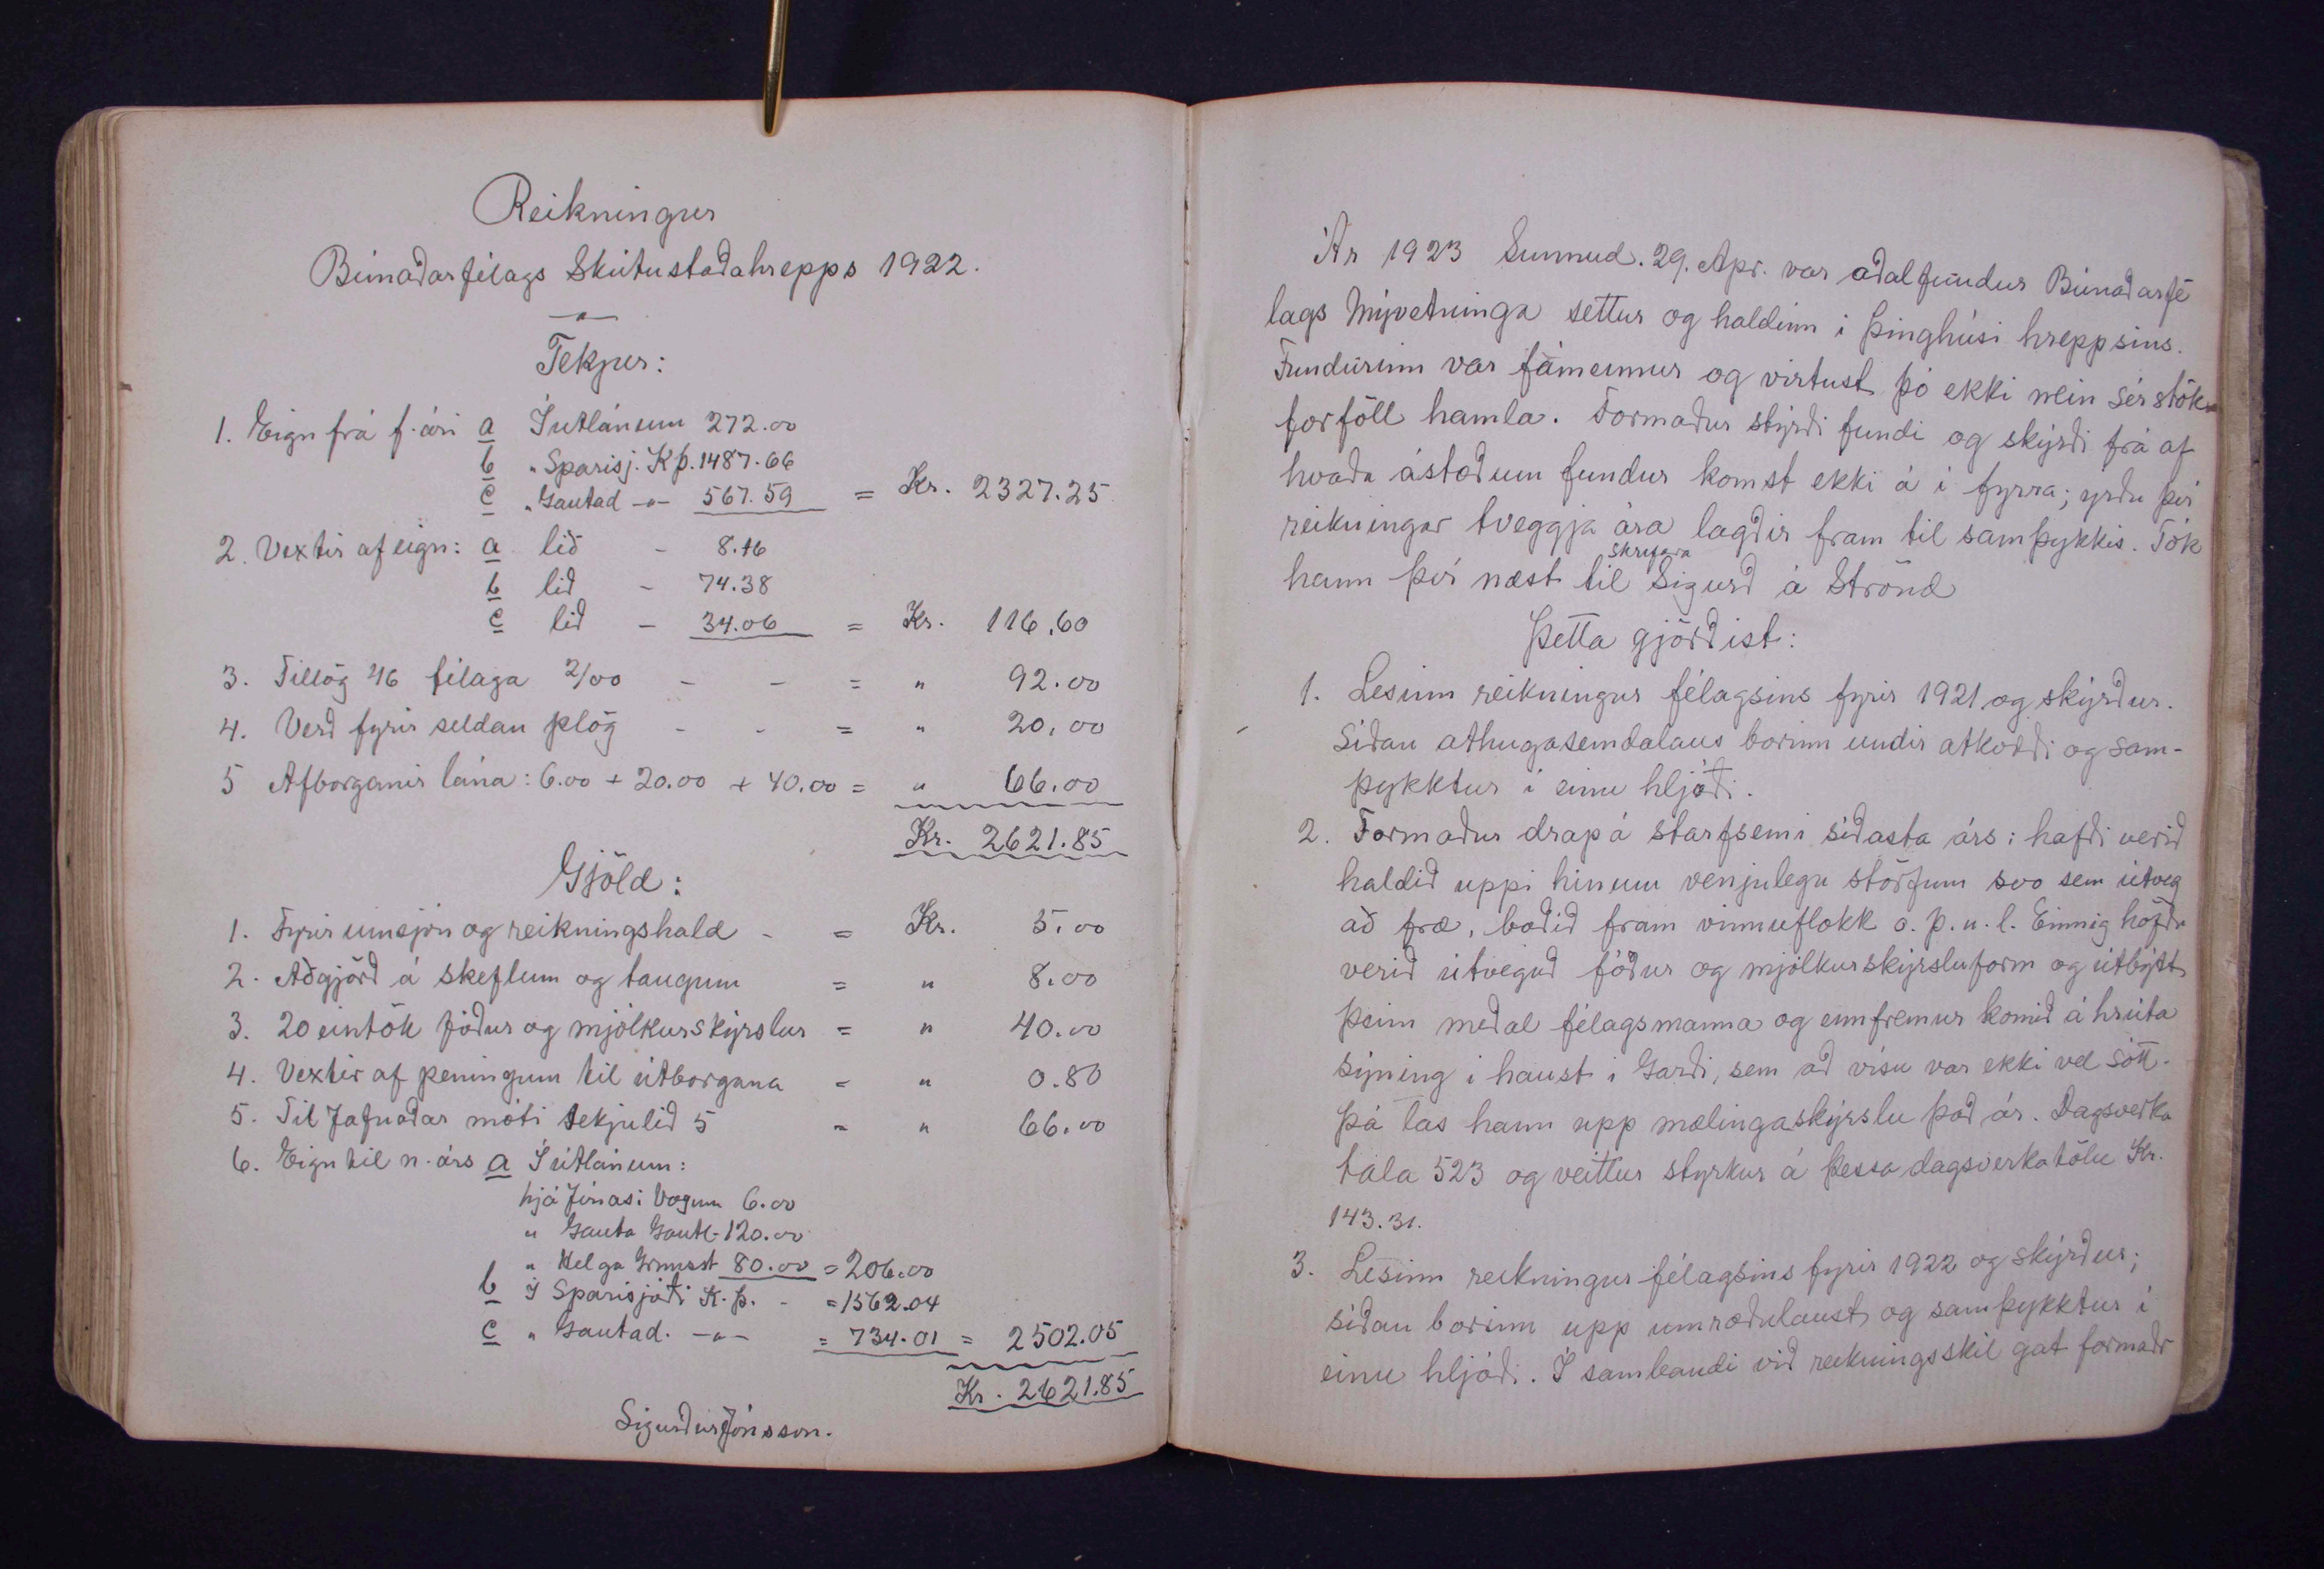 Reikningur
Búnaðarfélags Skútustaðahrepps 1922.
—"—
Tekjur:
1. Eign frá f. ári a Í útlánum 272.00
b " Sparisj. K.Þ. 1487.66
c " Gautad —"— 567.59 = Kr. 2327.25
2. Vextir af eign: a lið - 8.16
b lið - 74.38
c lið - 34.06 = Kr. 116.60
3. Tillög 46 félaga 2/00 - - = " 92.00
4. Verð fyrir seldan plóg - - = " 20.00
5 Afborganir lána: 6.00 + 20.00 + 40.00 = " 66.00
Kr. 2621.85
Gjöld:
1. Fyrir umsjón og reikningshald - = Kr. 5.00
2. Aðgjörð á skeflum og taugum = " 8.00
3. 20 eintök fóður og mjólkurskýrslur = " 40.00
4. Vextir af peningum til útborgana = " 0.80
5. Til Jafnaðar móti tekjulið 5 = " 66.00
6. Eign til n. árs a Í útlánum:
hjá Jónasi Vogum 6.00
" Gauta Gautl- 120.00
" Helga Grímsst 80.00 = 206.00
b Í Sparisjóði K.Þ. - = 1562.04
c " Gautad. —"— = 734.01 = 2502.05
Kr. 2621.85
Sigurður Jónsson.
Ár 1923 Sunnud. 29. Apr. var aðalfundur Búnaðarfé
lags Mývetninga settur og haldinn í þinghúsi hreppsins.
Fundurinn var fámennur og virtust þó ekki nein sérstök
forföll hamla. Formaður stýrði fundi og skýrði frá af
hvaða ástæðum fundur komst ekki á í fyrra; yrðu því
reikningar tveggja ára lagðir fram til samþykkis. Tók
skrifara
hann því næst til Sigurð á Strönd
Þetta gjörðist:
1. Lesinn reikningur félagsins fyrir 1921 og skýrður.
Síðan athugasemdalaus borinn undir atkvæði og sam-
þykktur í einu hljóði.
2. Formaður drap á starfsemi síðasta árs: hafði verið
haldið uppi hinum venjulegu störfum svo sem útveg
að fræ, boðið fram vinnuflokk o. þ. u. l. Einnig höfðu
verið útveguð fóður og mjólkurskýrsluform og útbýtt
þeim meðal félagsmanna og ennfremur komið á hrúta
sýning í haust í Garði, sem að vísu var ekki vel sótt.
Þá las hann upp mælingaskýrslu það ár. Dagsverka
tala 523 og veittur styrkur á þessa dagsverkatölu Kr.
143.31.
3. Lesinn reikningur félagsins fyrir 1922 og skýrður;
síðan borinn upp umræðulaust og samþykktur í
einu hljóði. Í sambandi við reikningsskil gat formaðr